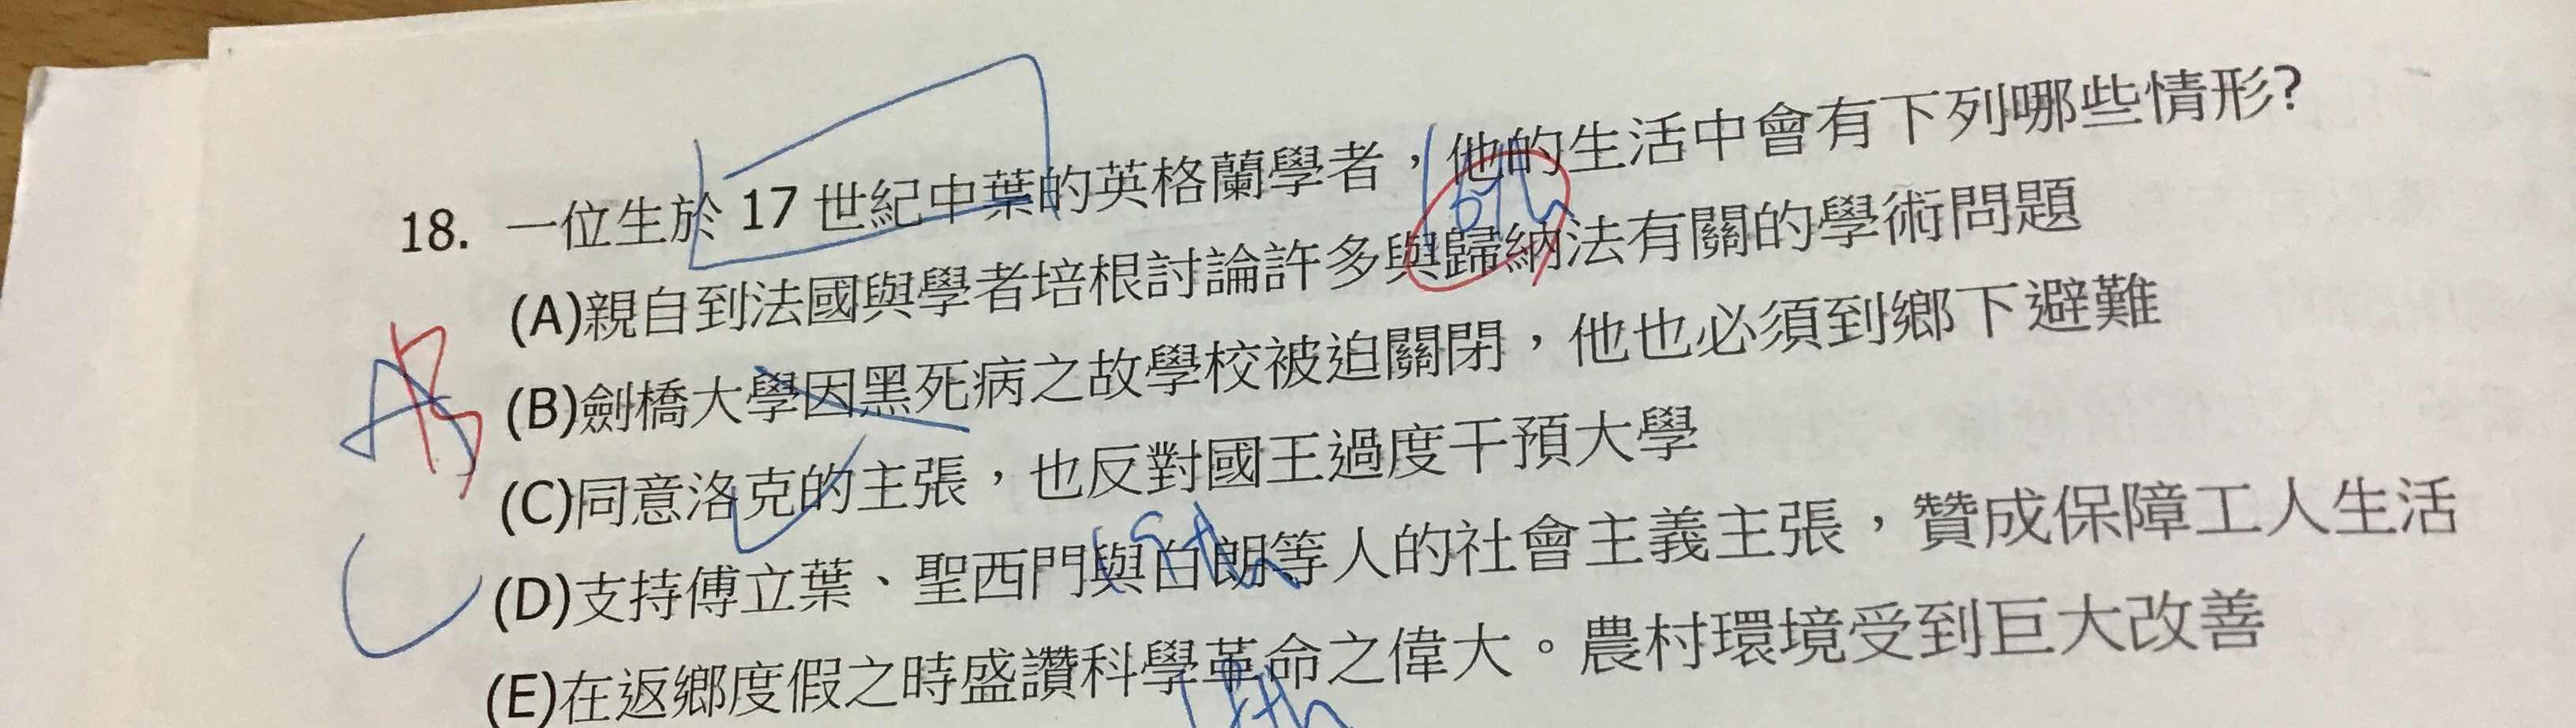 18. 一位生於 17 世紀中葉的英格蘭學者，他的生活中會有下列哪些情形?
(A)親自到法國與學者培根討論許多與歸納法有關的學術問題
(B)劍橋大學因黑死病之故學校被迫關閉，他也必須到鄉下避難
(C)同意洛克的主張，也反對國王過度干預大學
(D)支持傅立葉、聖西門與白朗等人的社會主義主張，贊成保障工人生活
(E)在返鄉度假之時盛讚科學革命之偉大。農村環境受到巨大改善
A
B
C